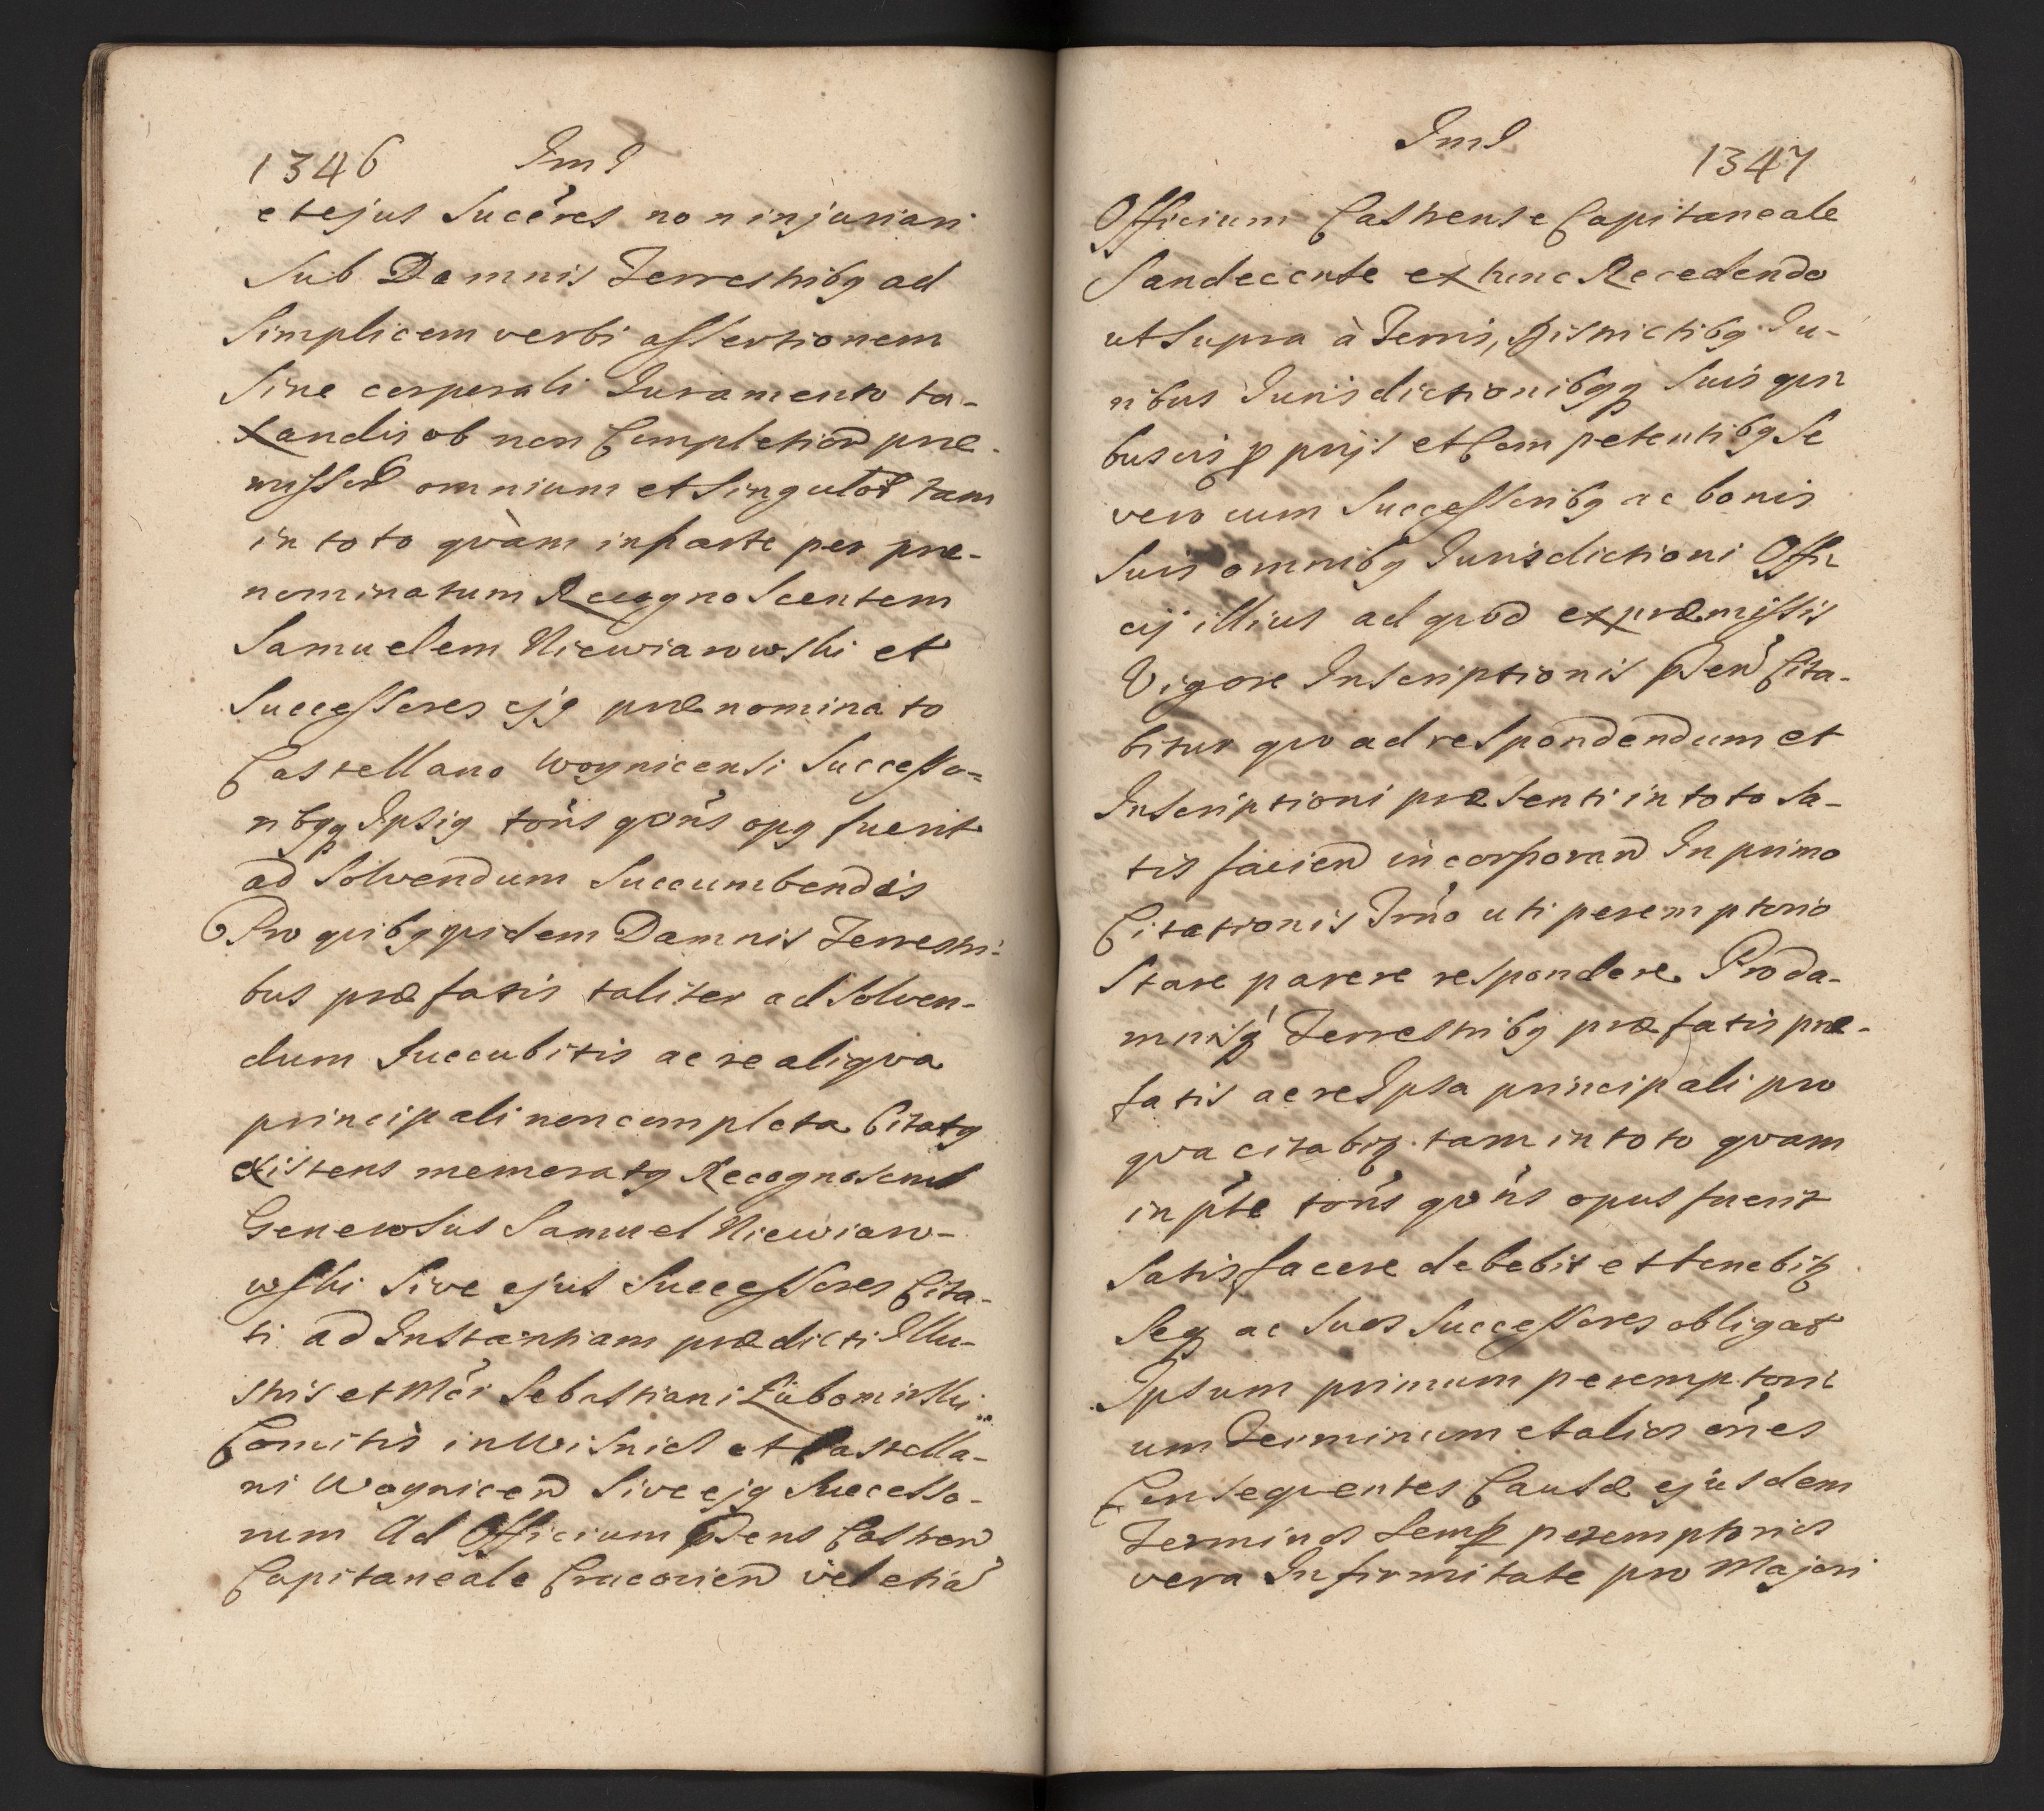 1346 Jnd
et ejus Sucéres non injuriari
Sub Damnis Terrestribq ad
Simplicem verbi assertionem
Sine corporali Juramento ta-
xandis ob non Completioē præ-
missoꝝ omnium et Singuloꝝ tam
in toto qvàm in parte per præ-
nominatum Recognoscentem
Samuelem Niewiarowski et
Successores ejq prænominato
Castellano Woynicensi Successo-
ribqꝫ Ipsiq toñs qvoñs opq fuerit
ad Solvendum Succumbendis
Pro qvibq qvidem Damnis Terrestri-
bus præfatis taliter ad Solven-
dum Succubitis ac re aliqva
principali non completa Citatq
existens memoratq Recognoscens
Generosus Samuel Niewiaro-
wski Sive ejus Successores Cita-
ti ad Instantiam prædicti Illu-
stris et Mći Sebastiani Lubomirski
Comitis in Wisnicz et Castella-
ni Woynicen Sive ejq Successo-
rum Ad Officium pdens Castren
Capitaneale Cracovien vel etiā
Jnd 1347
Officium Castrense Capitaneale
Sandecense ex tunc Recedendo
ut Supra à Terris, Districtibq Ju-
ribus Jurisdictionibqꝫ Suis qvi
busvis ꝓprijs et Competentibq Se
vero cum Successoribq ac bonis
Suis omnibq Jurisdictioni Offi
cij illius ad qvod ex præmissis
Vigore Inscriptionis pden Cita-
bitur qvo ad respondendum et
Inscriptioni præsenti in toto Sa-
tis facien incorporan In primo
Citationis Trńo uti peremptorio
Stare parere respondere Pro da-
mnisꝫ Terrestribq præfatis præ-
fatis ac re Ipsa principali pro
qva citabiꝷ tam in toto qvam
in pte toñs qvoñs opus fuerit
Satisfacere debebit et tenebiꝷ
Seqꝫ ac Suos Successores obligat
Ipsum primum peremptori
um Terminum et alios oñes
Conseqventes Causæ ejusdem
Terminos Semꝑ peremptorios
vera Infirmitate pro Majori